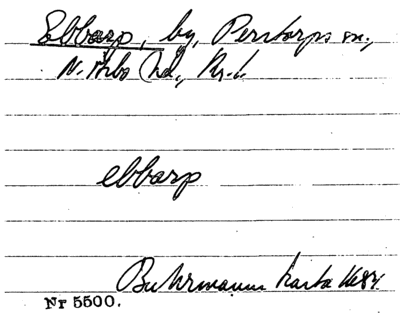 Ebbarp, by, Perstorps sn.,
N. Åsbo hd., Kr. l.
ebbarp
Buhrmanns karta 1684.
Nr 5500.